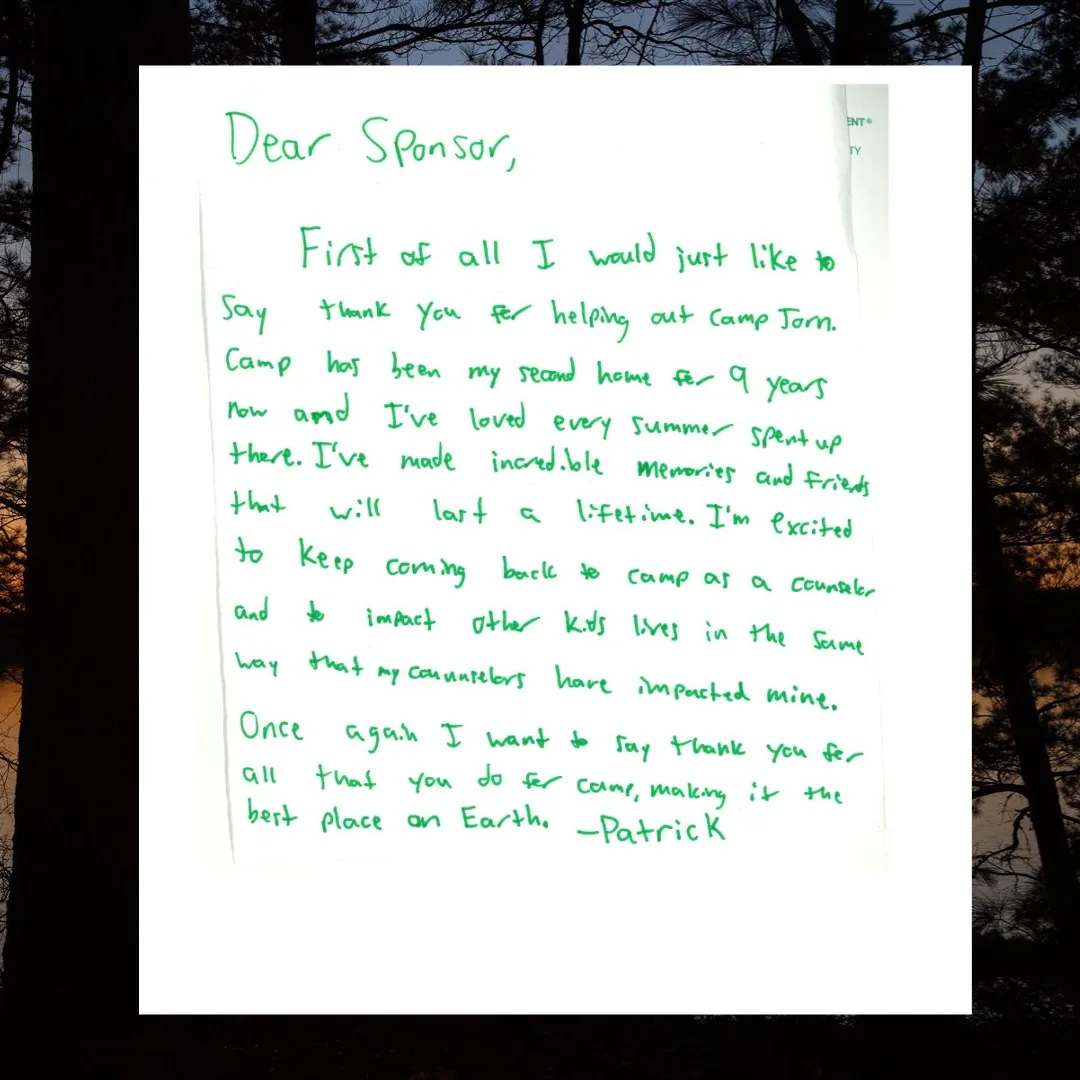 Dear Sponsor,
ENT®
TY
First of all I would just like to
say thank you for helping out Camp Jorn.
Camp has been my second home for 9 years
now and I've loved every summer spent up
there. I've made incredible memories and friends
that will last a lifetime. I'm excited
to keep coming back to camp as a counselor
and to impact other kids lives in the same
way that my couunselors have impacted mine.
Once again I want to say thank you for
all that you do for camp, making it the
best place on Earth. -Patrick